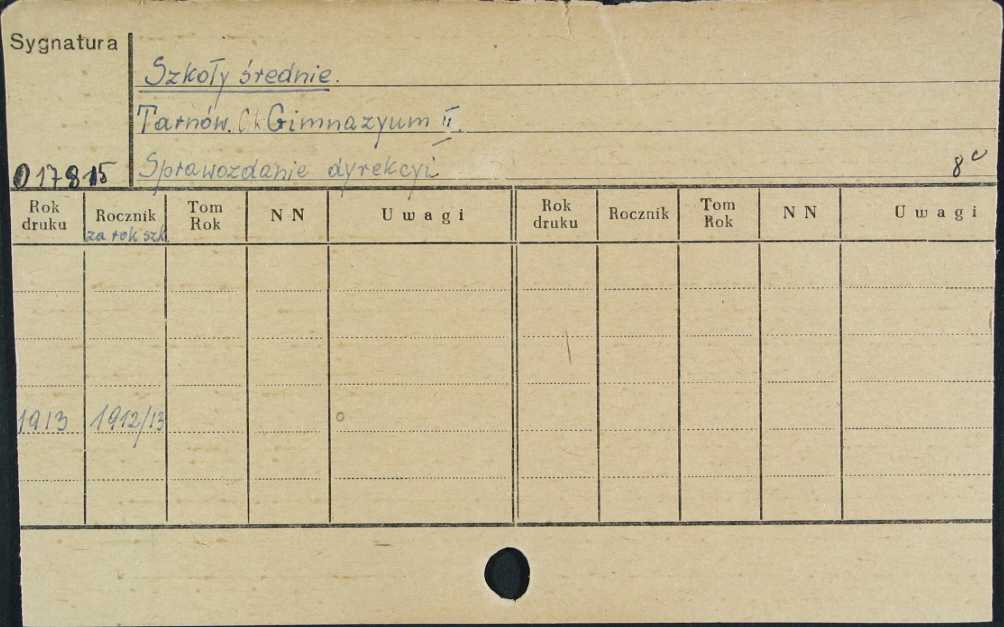 Sygnatura
Szkoły średnie.
Tarnów. C.k. Gimnazyum II.
Sprawozdanie dyrekcyi
8°
017815
Rok druku Rocznik za rok szk. Tom Rok NN Uwagi Rok druku Rocznik Tom Rok NN Uwagi
1913 1912/13